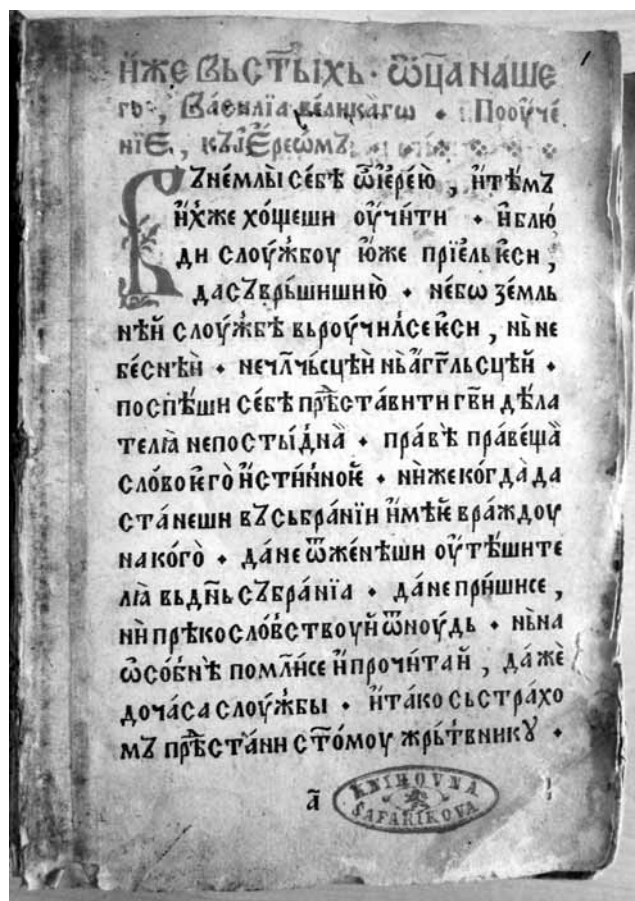 И҆же въст҃ыхь · ѿц҃а наше
го , Васи́лїа вели́кагѡ · Пооуче́
нїе , къ і҆ере́ѡмъ
Въне́млы се́бѣ ѽ і҆ере́ю , и҆тѣ́мъ
и҆́хже хо́щеши оу҆чи́ти · и҆ блю́
ди слоу́жбоу ю҆́же прїе́ль ѥ҆си ,
да съврь́шиши ю҆̀ · не́бѡ зе́мль
нѣй слоу́жбѣ вьроучи́лсе ѥ҆си , нь̀ не
бе́снѣй · не чл҃чьсцѣй нь̀ а҆гг҃льсцѣй ·
поспѣ́ши се́бѣ прѣ̑ста́вити гв҃и дѣ́ла
телꙗ непосты́днꙗ̀ · пра́вѣ пра́вещꙗ̀
сло́во ѥ҆го̀ и҆́стинноѥ · ни́же когда̀ да
ста́неши въ сьбра́нїи и҆мѣ́ѥ вражд́оу
на ко́го · да́ не ѿжене́ши оу҆тѣ́шите
лꙗ вь дн҃ь събра́нїа · да́ не при́шисе ,
ни прѣкосло́вствоуй ѿноудь · нь̀ на
ѡ҆со́бнѣ помли́се и҆ прочи́тай , да́же
до ча́са слоу́жбы · и҆ та́ко сьстра́хо
мъ прѣ̑ста́ни ст҃о́моу жрь́твникꙋ ·
а҃
1
KNIHOVNA
SAFARIKOVA